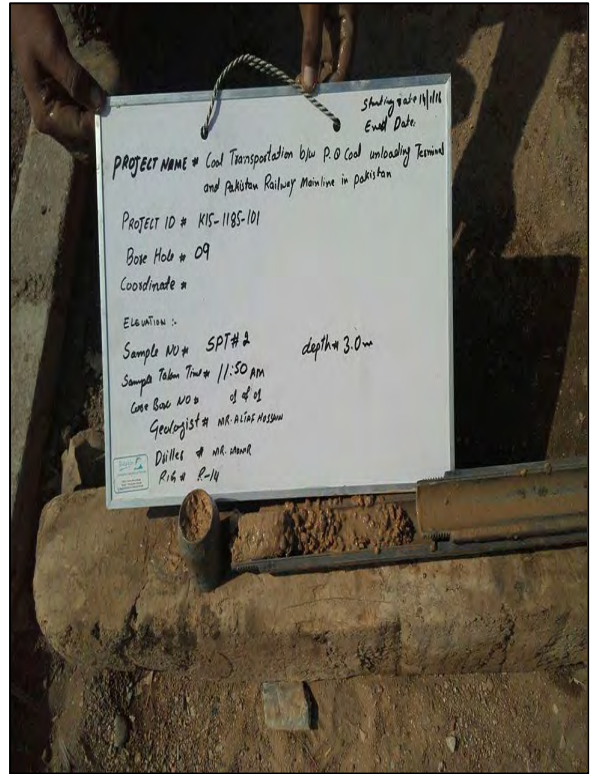 Starting Date 14/1/16
End Date:
PROJECT NAME # Coal Transportation b/w P.Q Coal unloading Terminal
and Pakistan Railway Mainline in pakistan
PROJECT ID # K15-1185-101
Bore Hole # 09
Coordinate #
ELEVATION :-
Sample NO # SPT#2 depth # 3.0m
Sample Taken Time # 11:50 AM
Core Box NO # 01 of 01
Geologist # MR. ALTAF HUSSAIN
Driller # MR.
RIG # R-14